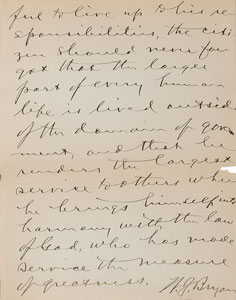 ful to live up to his re-
sponsibilities, the citi
zen should never for
get that the larger
part of every human
life is lived outside
of the domain of gov
ernment, and that he
renders the largest
service to others when
he brings himself into
harmony with the law
of God, who has made
service the measure
of greatness. W.J. Bryan